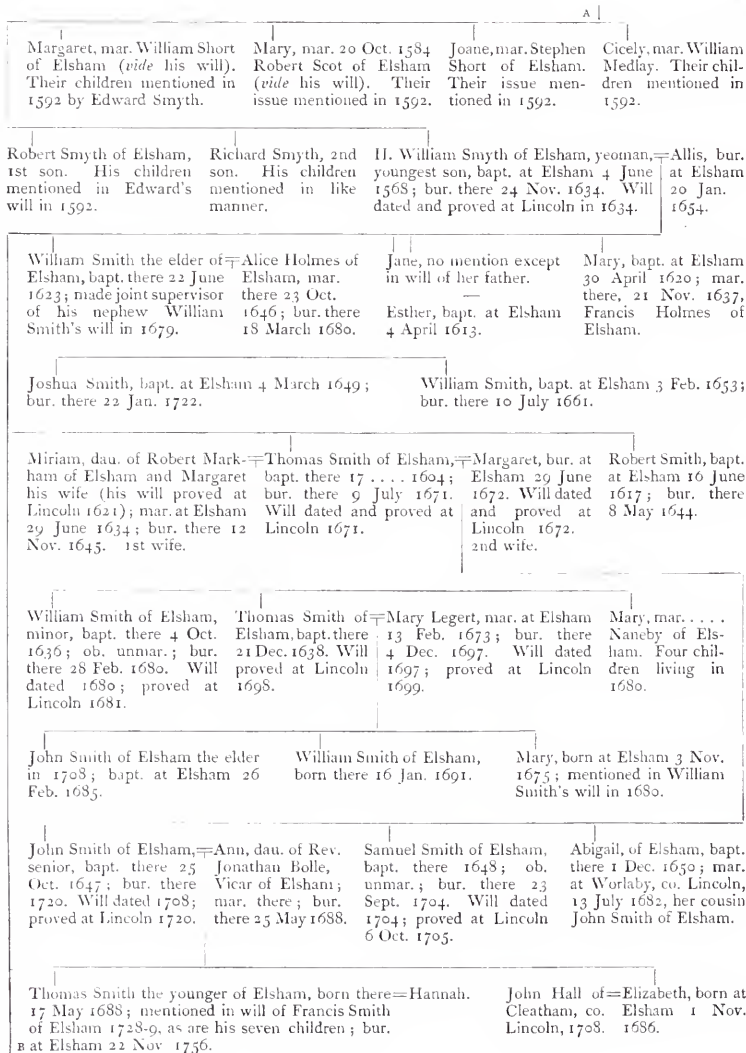 A
Margaret, mar. William Short
of Elsham (vide his will).
Their children mentioned in
1592 by Edward Smyth.
Mary, mar. 20 Oct. 1584
Robert Scot of Elsham
(vide his will). Their
issue mentioned in 1592.
Joane, mar. Stephen
Short of Elsham.
Their issue men-
tioned in 1592.
Cicely, mar. William
Medlay. Their chil-
dren mentioned in
1592.
Robert Smyth of Elsham,
1st son. His children
mentioned in Edward's
will in 1592.
Richard Smyth, 2nd
son. His children
mentioned in like
manner.
II. William Smyth of Elsham, yeoman,
youngest son, bapt. at Elsham 4 June
1568; bur. there 24 Nov. 1634. Will
dated and proved at Lincoln in 1634.
=Allis, bur.
at Elsham
20 Jan.
1654.
William Smith the elder of
Elsham, bapt. there 22 June
1623; made joint supervisor
of his nephew William
Smith's will in 1679.
=Alice Holmes of
Elsham, mar.
there 23 Oct.
1646; bur. there
18 March 1680.
Jane, no mention except
in will of her father.
—
Esther, bapt. at Elsham
4 April 1613.
Mary, bapt. at Elsham
30 April 1620; mar.
there, 21 Nov. 1637,
Francis Holmes of
Elsham.
Joshua Smith, bapt. at Elsham 4 March 1649;
bur. there 22 Jan. 1722.
William Smith, bapt. at Elsham 3 Feb. 1653;
bur. there 10 July 1661.
Miriam, dau. of Robert Mark-
ham of Elsham and Margaret
his wife (his will proved at
Lincoln 1621); mar. at Elsham
29 June 1634; bur. there 12
Nov. 1645. 1st wife.
=Thomas Smith of Elsham,
bapt. there 17 .... 1604;
bur. there 9 July 1671.
Will dated and proved at
Lincoln 1671.
=Margaret, bur. at
Elsham 29 June
1672. Will dated
and proved at
Lincoln 1672.
2nd wife.
Robert Smith, bapt.
at Elsham 16 June
1617; bur. there
8 May 1644.
William Smith of Elsham,
minor, bapt. there 4 Oct.
1636; ob. unmar.; bur.
there 28 Feb. 1680. Will
dated 1680; proved at
Lincoln 1681.
Thomas Smith of
Elsham, bapt. there
21 Dec. 1638. Will
proved at Lincoln
1698.
=Mary Legert, mar. at Elsham
13 Feb. 1673; bur. there
4 Dec. 1697. Will dated
1697; proved at Lincoln
1699.
Mary, mar. ....
Naneby of Els-
ham. Four chil-
dren living in
1680.
John Smith of Elsham the elder
in 1708; bapt. at Elsham 26
Feb. 1685.
William Smith of Elsham,
born there 16 Jan. 1691.
Mary, born at Elsham 3 Nov.
1675; mentioned in William
Smith's will in 1680.
John Smith of Elsham,
senior, bapt. there 25
Oct. 1647; bur. there
1720. Will dated 1708;
proved at Lincoln 1720.
=Ann, dau. of Rev.
Jonathan Bolle,
Vicar of Elsham;
mar. there; bur.
there 25 May 1688.
Samuel Smith of Elsham,
bapt. there 1648; ob.
unmar.; bur. there 23
Sept. 1704. Will dated
1704; proved at Lincoln
6 Oct. 1705.
Abigail, of Elsham, bapt.
there 1 Dec. 1650; mar.
at Worlaby, co. Lincoln,
13 July 1682, her cousin
John Smith of Elsham.
Thomas Smith the younger of Elsham, born there=Hannah.
17 May 1688; mentioned in will of Francis Smith
of Elsham 1728-9, as are his seven children; bur.
B at Elsham 22 Nov 1756.
John Hall of
Cleatham, co.
Lincoln, 1708.
=Elizabeth, born at
Elsham 1 Nov.
1686.